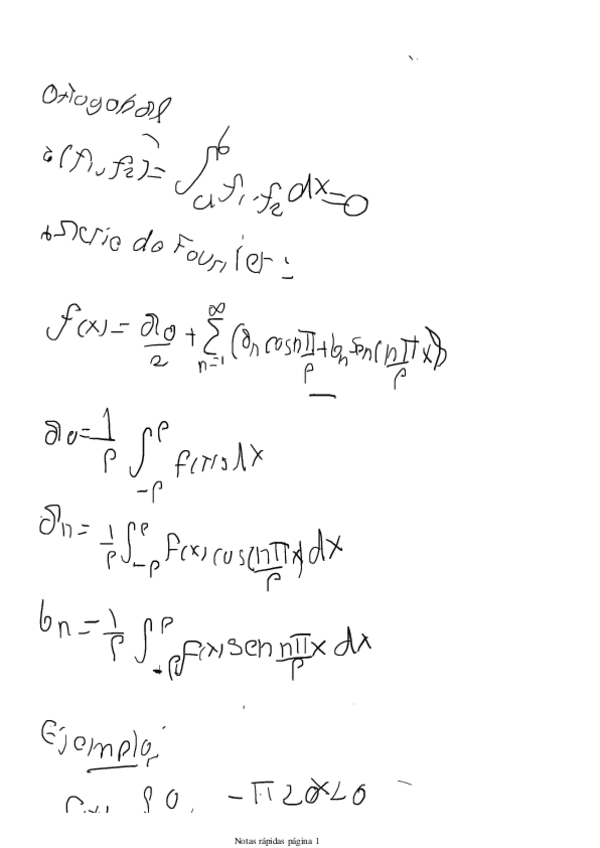 Ortogonal
(f₁, f₂) = ∫ₐᵇ f₁ · f₂ dx = 0
Serie de Fourier:
f(x) = a₀/2 + Σₙ₌₁^∞ (aₙ cos nπ/p + bₙ sen(nπ/p x))
a₀ = 1/p ∫₋ₚᵖ f(x) dx
aₙ = 1/p ∫₋ₚᵖ f(x) cos(nπ/p x) dx
bₙ = 1/p ∫₋ₚᵖ f(x) sen nπ/p x dx
Ejemplo:
0, -π < x < 0
Notas rápidas página 1